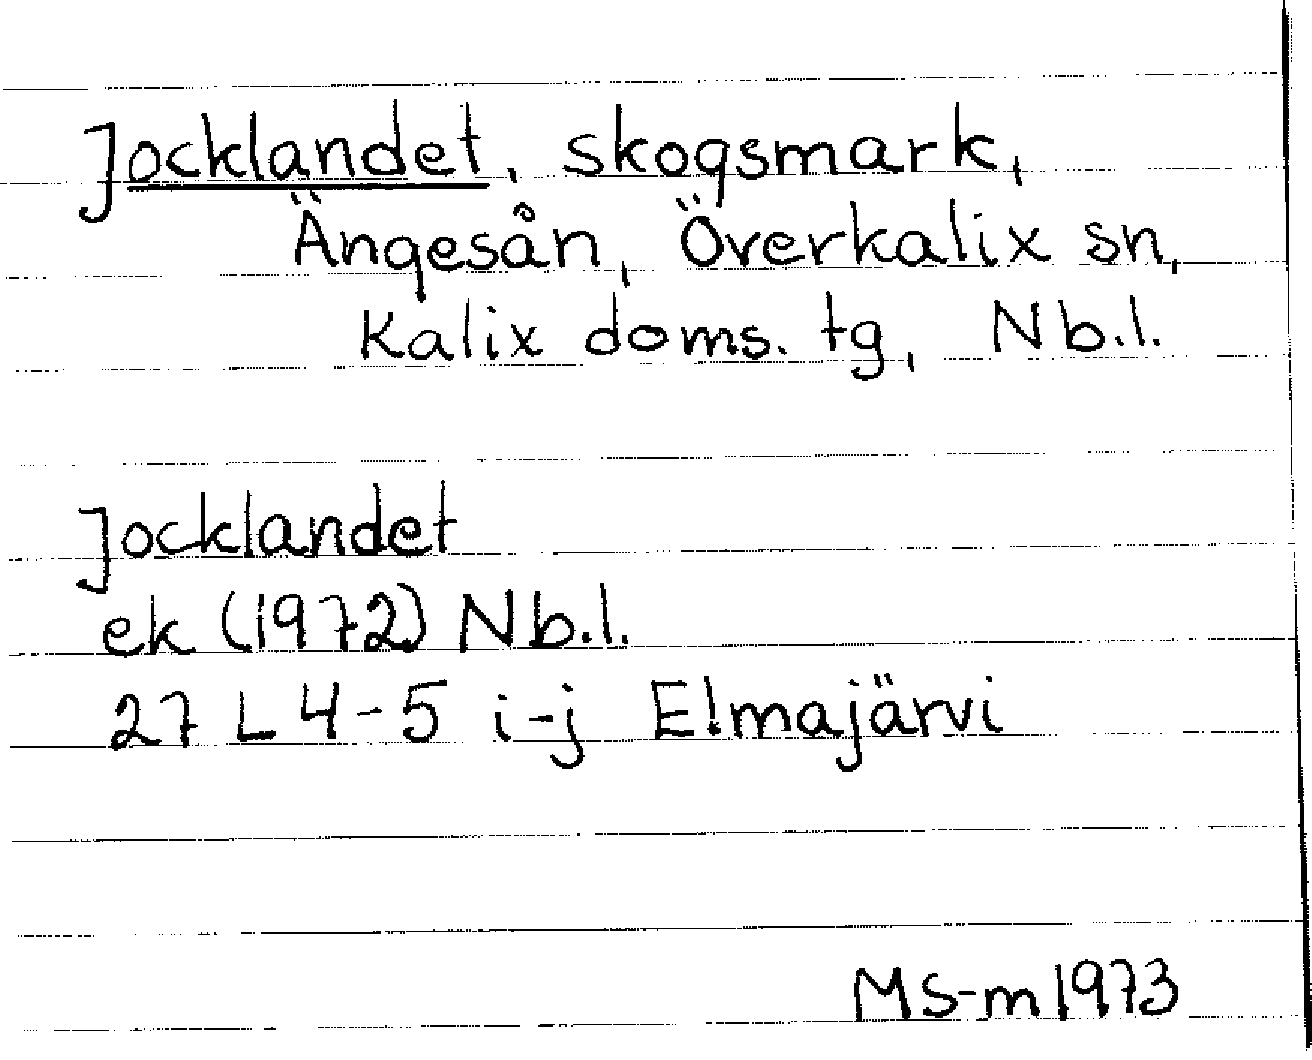 Jocklandet, skogsmark,
Ängesån, Överkalix sn,
Kalix doms. tg, Nb.l.
Jocklandet
ek (1972) Nb.l.
27 L 4-5 i-j Elmajärvi
MS-m 1973